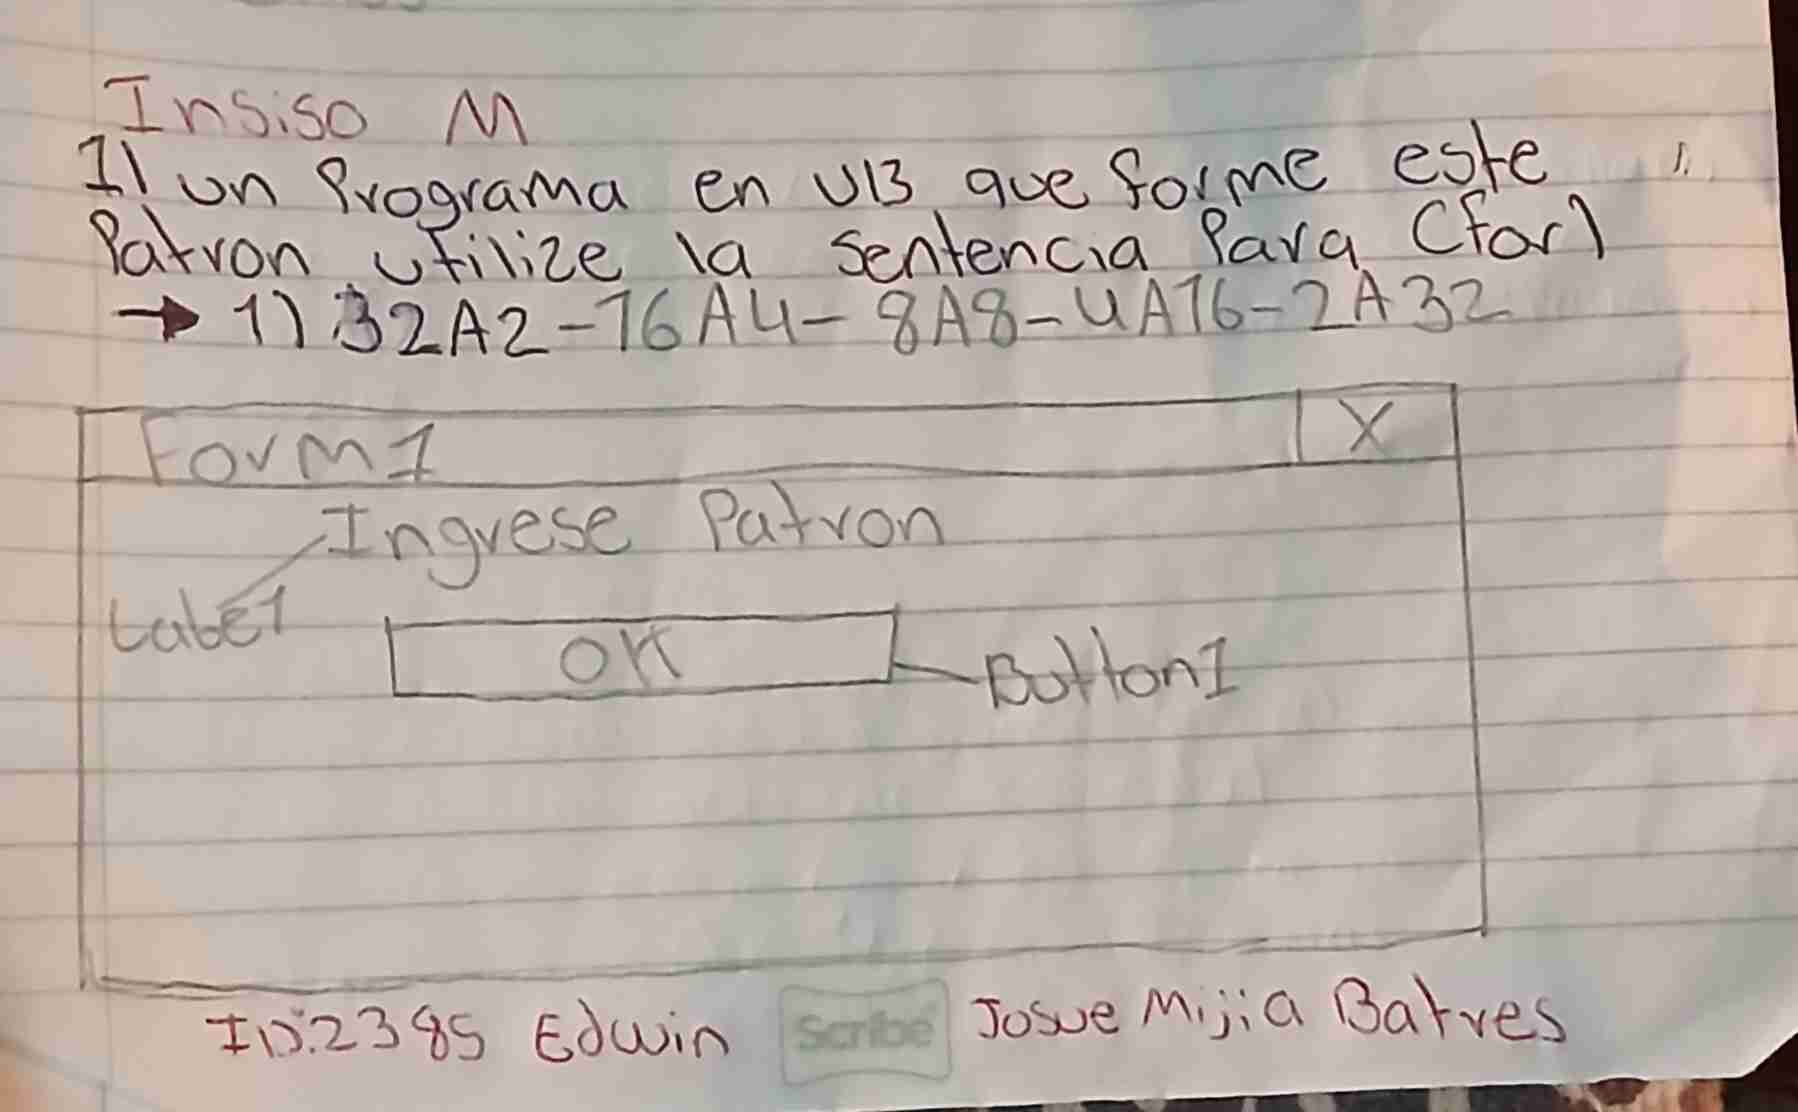 Insiso M
I) un Programa en VB que forme este
Patron utilize la sentencia Para (for)
→ 1) 32A2-16A4-8A8-4A16-2A32
Form1 X
Ingrese Patron
Label1
OK
Button1
ID:2385 Edwin Scribe Josue Mijia Batres